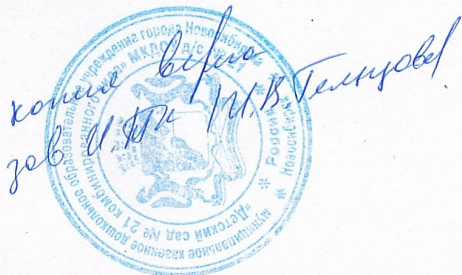 копия верна
зав И.В. Гельцова
муниципальное казенное дошкольное образовательное учреждение города Новосибирска
«Детский сад № 21 комбинированного вида» МКДОУ д/с № 21
Россия Новосибирск